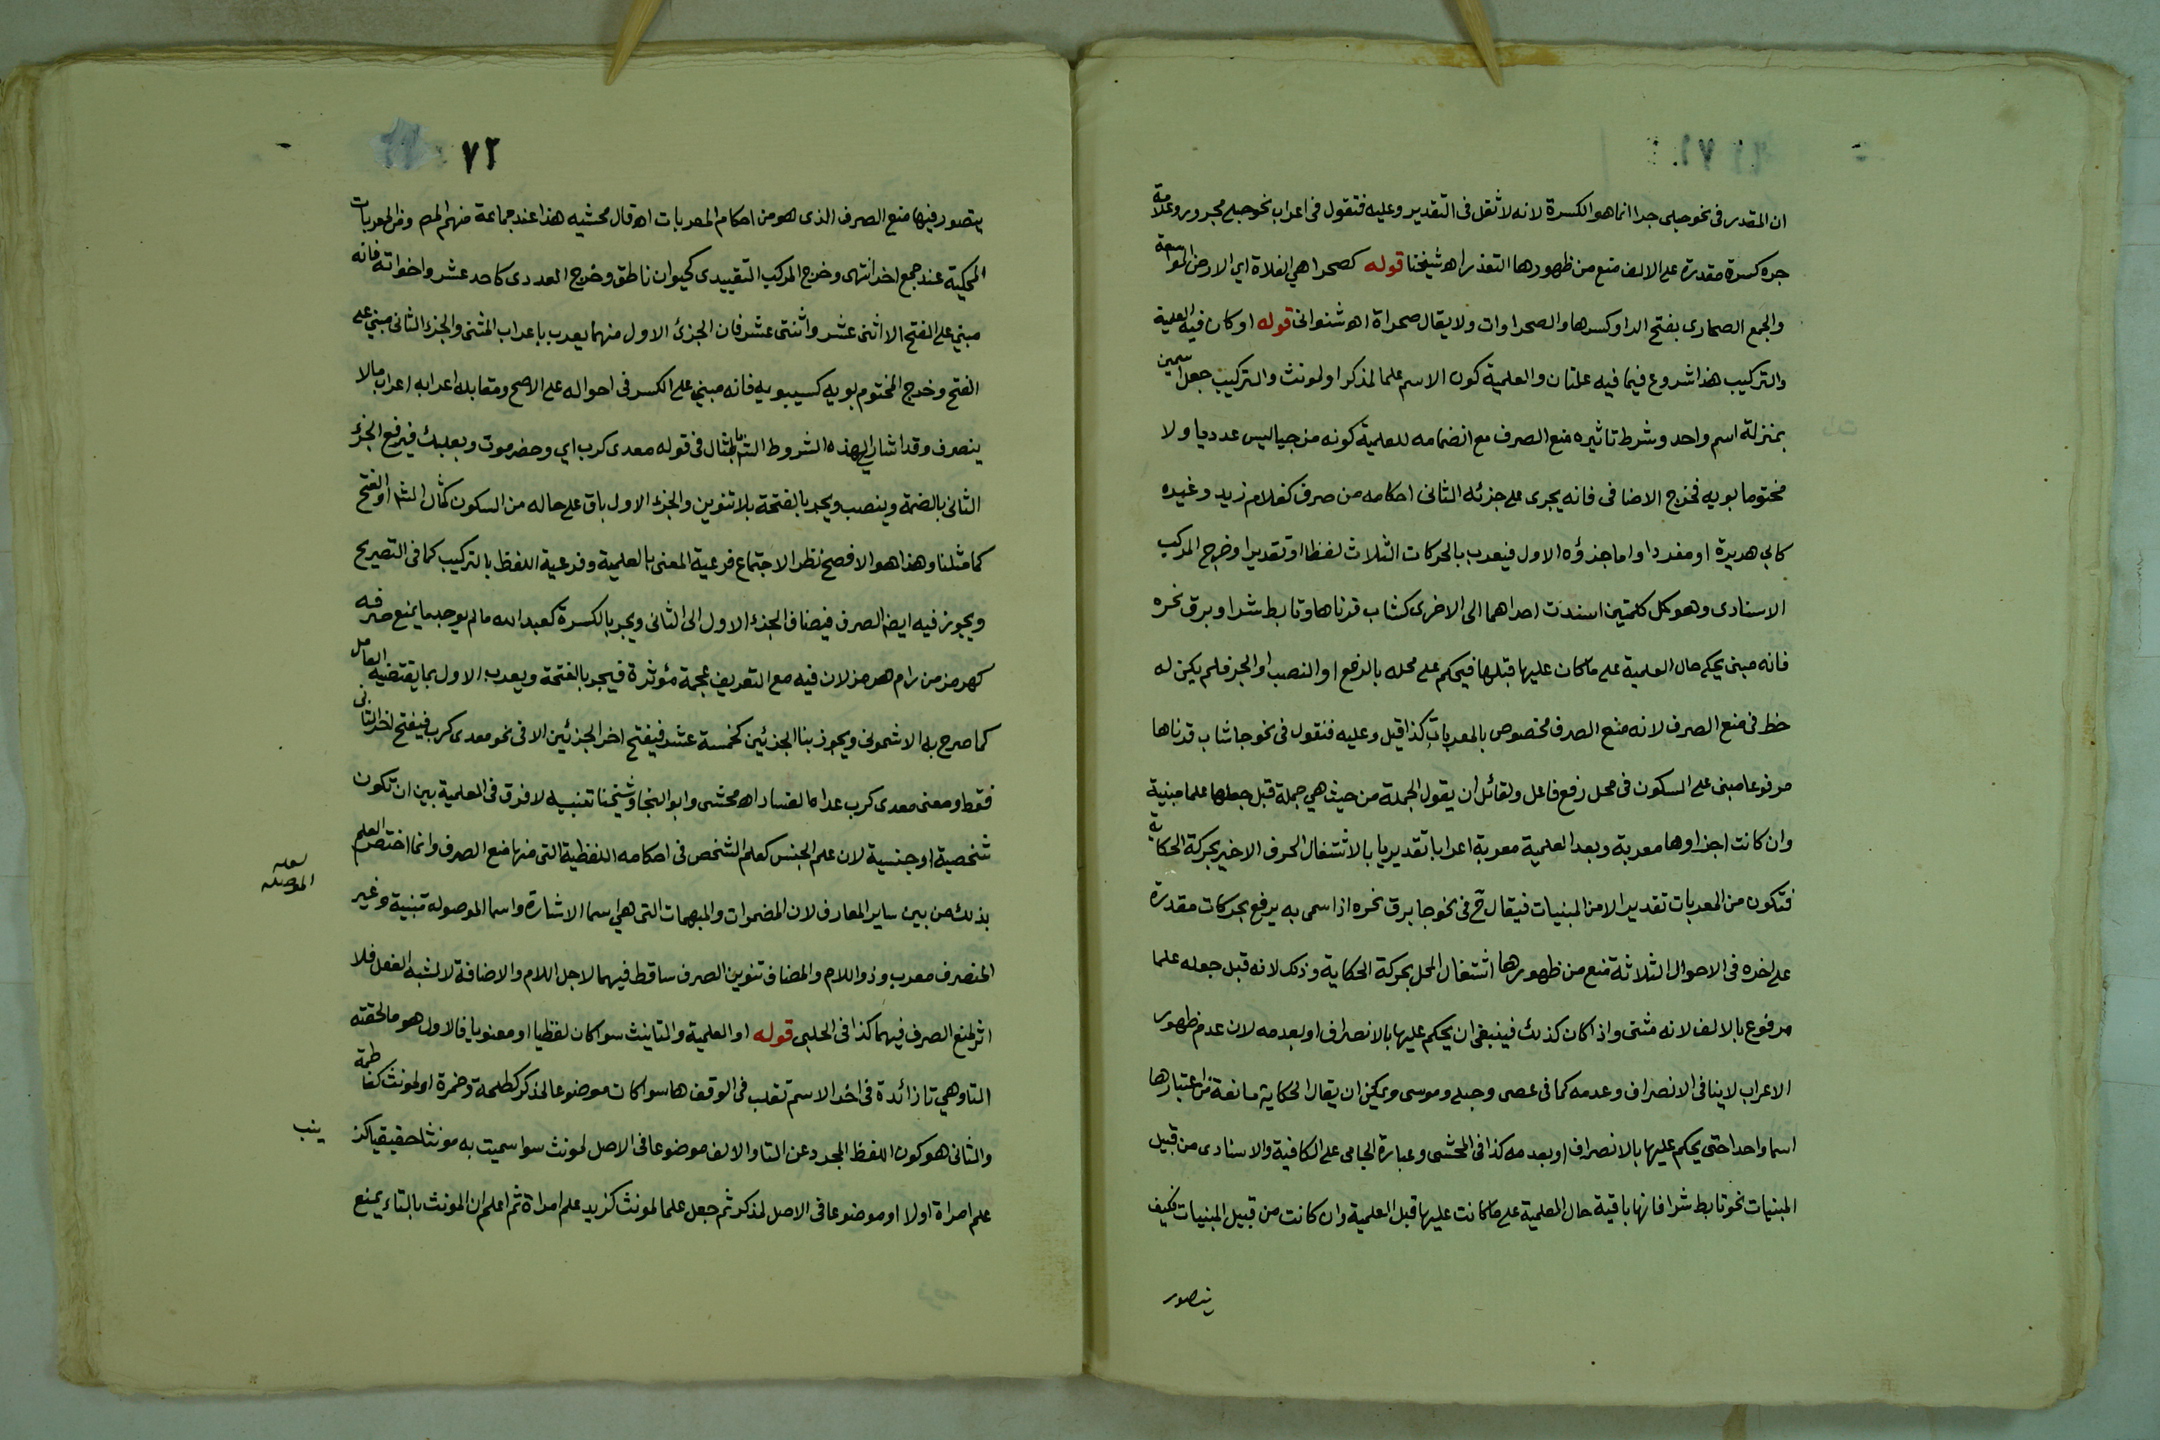 ٧١
ان المقدر فى نحو حبلى جرا انما هو الكسرة لانه لا ثقل فى التقدير وعليه فتقول فى اعراب نحو حبلى مجرور وعلامة
جره كسرة مقدرة على الالف منع من ظهورها التعذر اه شيخنا قوله كصحرا هي الفلاة اي الارض الواسعة
والجمع الصحارى بفتح الرا وكسرها والصحراوات ولا يقال صحراة اه شنوانى قوله او كان فيه العلمية
والتركيب هذا شروع فيما فيه علتان والعلمية كون الاسم علما لمذكر او لمونث والتركيب جعل اسمين
بمنزلة اسم واحد وشرط تاثيره منع الصرف مع انضمامه للعلمية كونه مزجيا ليس عدديا ولا
مختوما بويه فخرج الاضافى فانه يجرى على جزئه الثانى احكامه من صرف كغلام زيد وغيره
كابي هريرة او مفردا واما جزؤه الاول فيعرب بالحركات الثلاث لفظا او تقديرا وخرج المركب
الاسنادى وهو كل كلمتين اسندت احداهما الى الاخرى كشاب قرناها وتابط شرا وبرق نحره
فانه مبنى يحكى حال العلمية على ما كان عليها قبلها فيحكم على محله بالرفع او النصب او الجر فلم يكن له
حظ فى منع الصرف لانه منع الصرف مختصوص بالمعربات كذا قيل وعليه فنقول فى نحو جا شاب قرناها
مرفوعا مبنى على السكون فى محل رفع فاعل ولقائل ان يقول الجملة من حيث هي جملة قبل جعلها علما مبنية
وان كانت اجزاوها معربة وبعد العلمية معربة اعرابا تقديريا بالاشتغال الحرف الاخير بحركة الحكاية
فتكون من المعربات تقديرا لا من المبنيات فيقال ح فى نحو جا برق نحره اذا سمى به يرفع بحركات مقدرة
على اخره فى الاحوال الثلاثة منع من ظهورها اشتغال المحل بحركة الحكاية وذلك لانه قبل جعله علما
مرفوع بالالف لانه مثنى واذا كان كذلك فينبغى ان يحكم عليها بالانصراف او بعدمه لان عدم ظهور
الاعراب لا ينافى الانصراف وعدمه كما فى عصى وحبلى وموسى ويمكن ان يقال الحكاية مانعة من اعتبارها
اسما واحدا حتى يحكم عليها بالانصراف او بعدمه كذا فى المحشى وعبارة الجامى على الكافية والاسنادى من قبيل
المبنيات نحو تابط شرا فانها باقية حال العلمية على ما كانت عليها قبل العلمية وان كانت من قبيل المبنيات فكيف
يتصور
٧٢
يتصور فيها منع الصرف الذى هو من احكام المعربات اه قال محشيه هذا عند جماعة منهم المص ومن المعربات
المحكية عند جمع اخر انتهى وخرج المركب التقييدى كحيوان ناطق وخرج العددى كاحد عشر واخواته فانه
مبني على الفتح الا اثنى عشر واثنتى عشر فان الجزئ الاول منهما يعرب باعراب المثنى والجزء الثانى مبني على
الفتح وخرج المختوم بويه كسيبويه فانه مبني على الكسر فى احواله على الاصح ومقابله اعرابه اعراب ما لا
ينصرف وقد اشار الى هذه الشروط الثم بالمثال فى قوله معدى كرب اي وحضرموت وبعلبك فيرفع الجزء
الثانى بالضمة وينصب ويجر بالفتحة بلا تنوين والجزء الاول باق على حاله من السكون كمثال الش او الفتح
كما مثلنا وهذا هو الافصح نظرا لاجتماع فرعية المعنى بالعلمية وفرعية اللفظ بالتركيب كما فى التصريح
ويجوز فيه ايضا الصرف فيضاف الجزء الاول الى الثانى ويجر بالكسرة كعبد الله ما لم يوجد ما يمنع صرفه
كهرمز من رام هرمز لان فيه مع التعريف عجمة مؤثرة فيجر بالفتحة ويعرب الاول بما يقتضيه العامل
كما صرح به الاشمونى ويجوز بنا الجزئين كخمسة عشر فيفتح اخر الجزئين الا فى نحو معدى كرب فيفتح اخر الثانى
فقط ومعنى معدى كرب عداه الفساد اه محشى وابو النجا وشيخنا تنبيه لا فرق فى العلمية بين ان تكون
شخصية او جنسية لان علم الجنس كعلم الشخص فى احكامه اللفظية التى منها منع الصرف وانما اختص العلم
بذلك من بين ساير المعارف لان المضمرات والمبهمات التى هي اسما الاشارة واسما الموصوله مبنية وغير
لعله الموصلة
المنصرف معرب وذو اللام والمضاف تنوين الصرف ساقط فيهما لاجل اللام والاضافة لا لشبه الفعل فلا
اثر لمنع الصرف فيهما كذا فى الحلبى قوله او العلمية والتانيث سوا كان لفظيا او معنويا فالاول هو ما لحقته
التا وهي تا زائدة فى اخر الاسم تقلب فى الوقف ها سوا كان موضوعا لمذكر كطلحة وحمزة او لمونث كفاطمة
والثانى هو كون اللفظ المجرد عن التا والالف موضوعا فى الاصل لمونث سوا سميت به مونثا حقيقيا كز
ينب
علم امراة اولا او موضوعا فى الاصل لمذكر ثم جعل علما لمونث كزيد علم امراة ثم اعلم ان المونث بالتاء يمنع